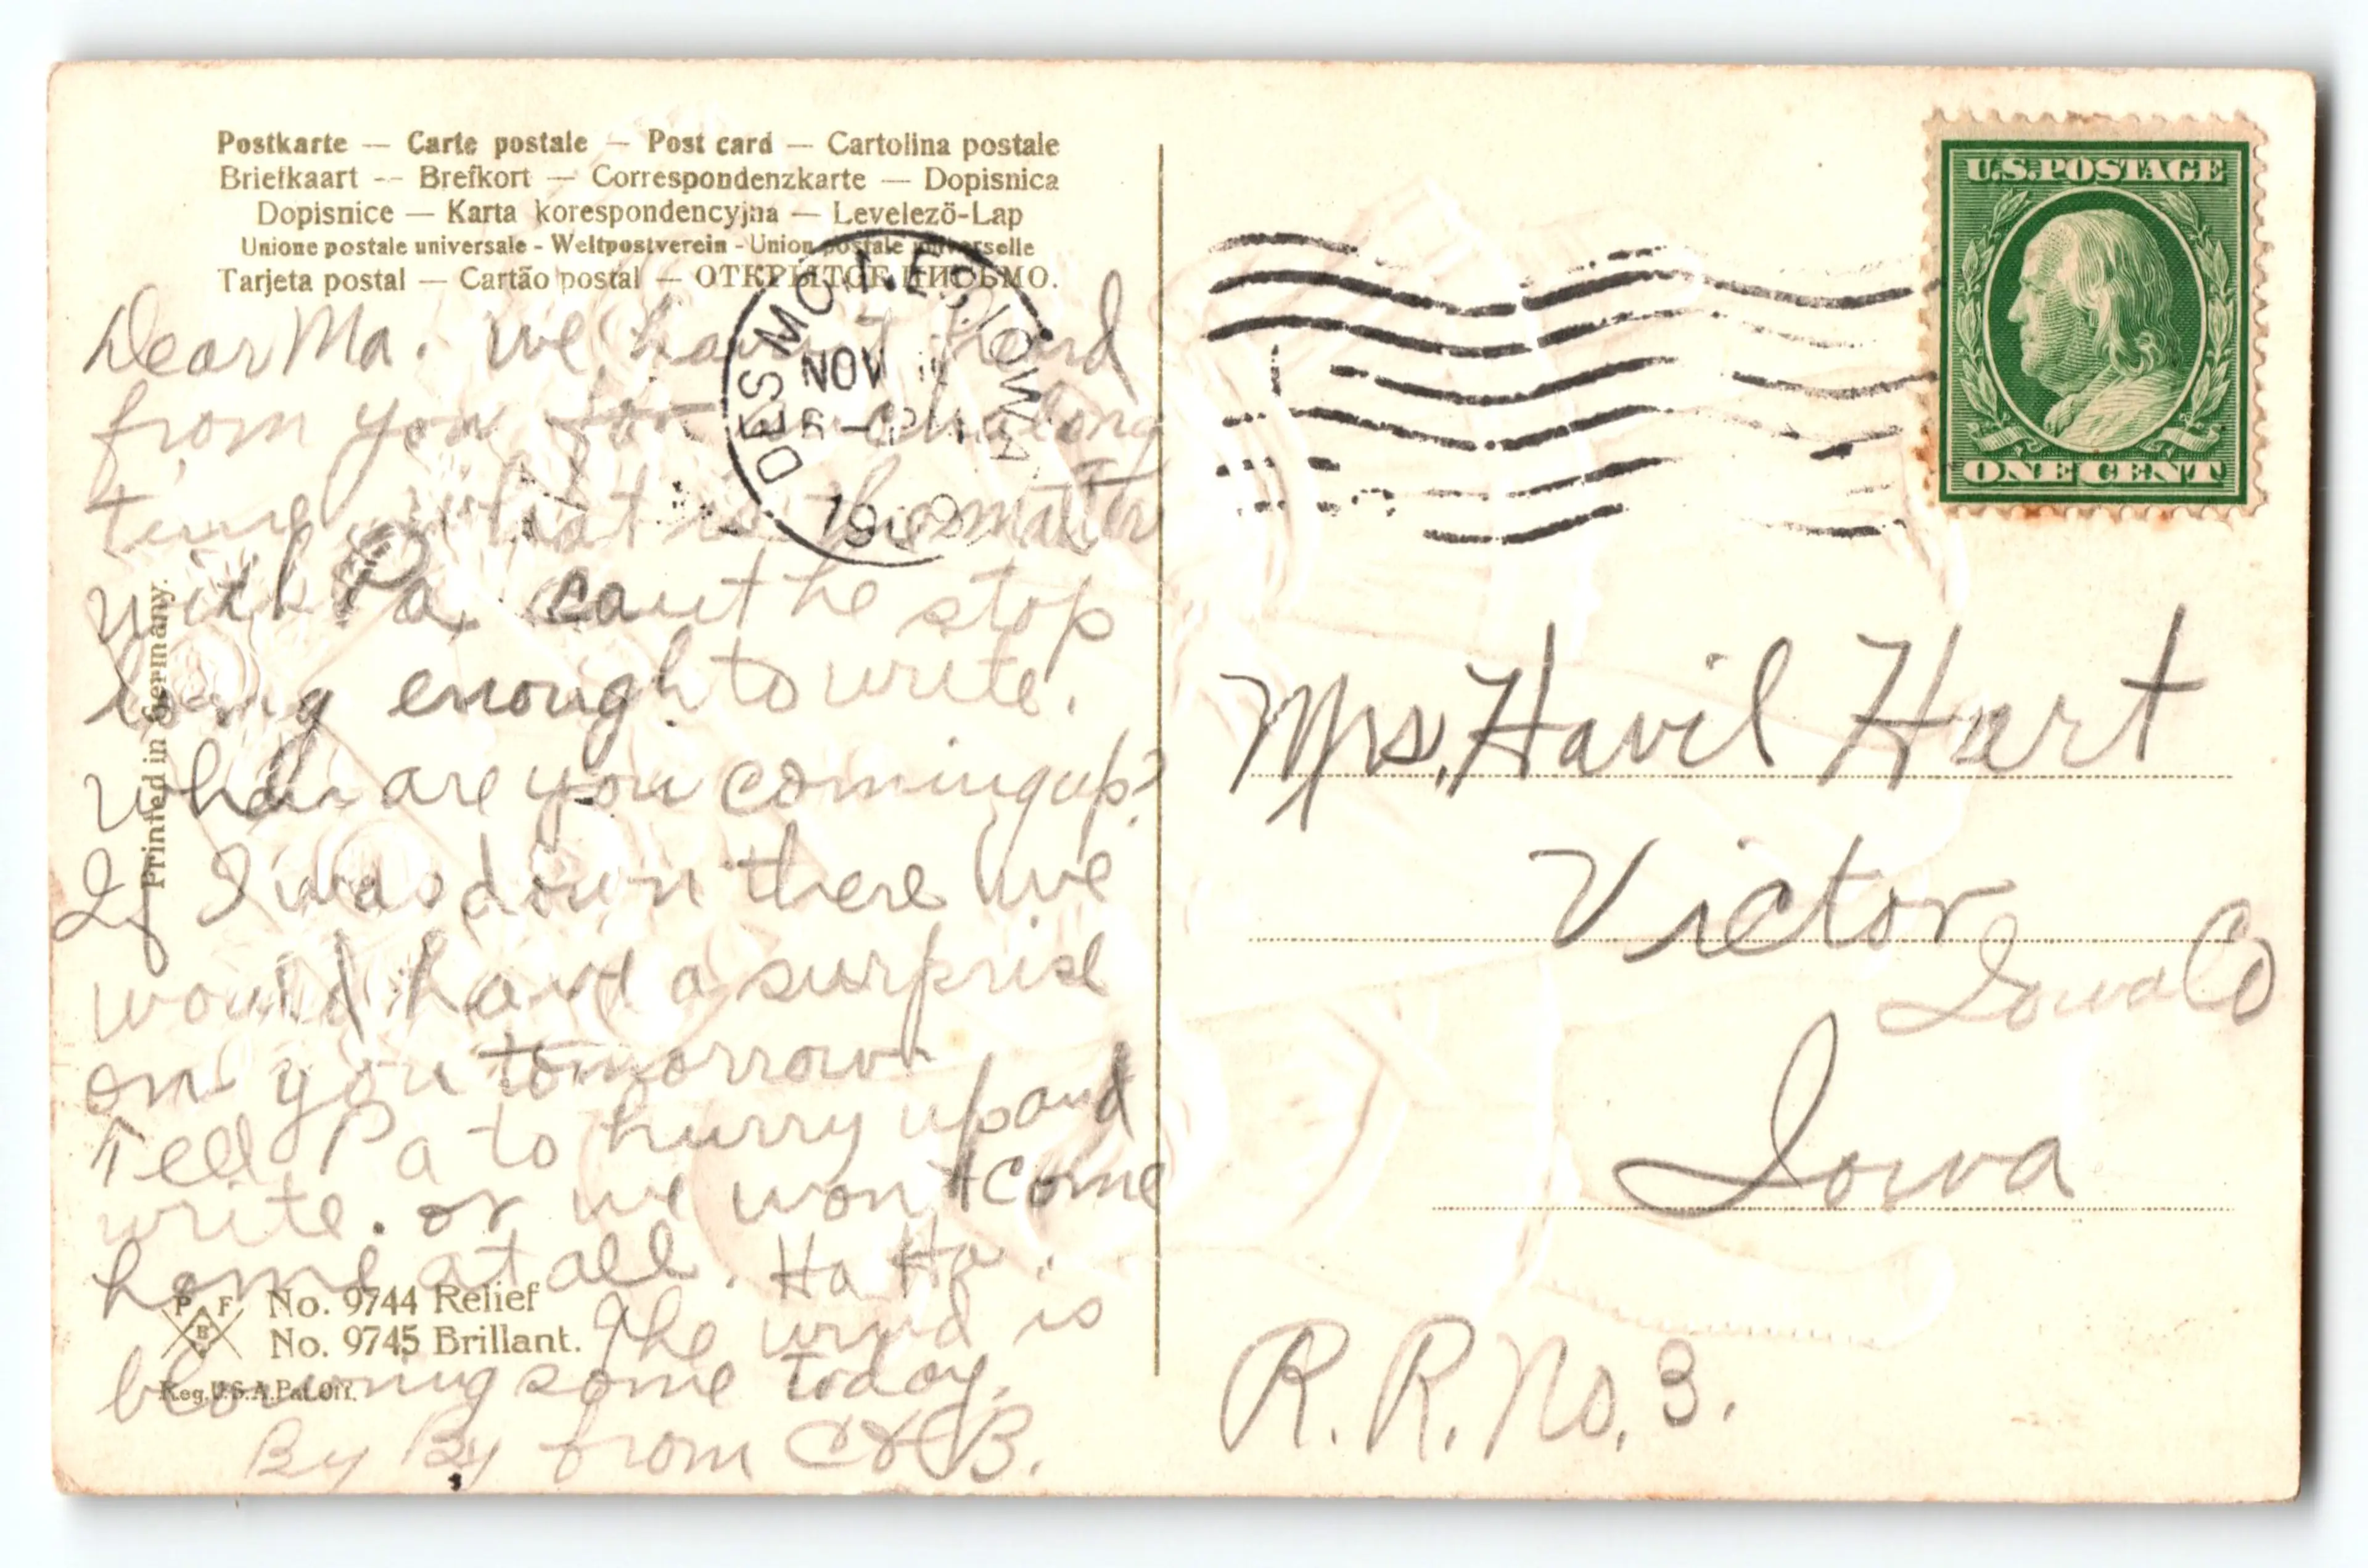 Postkarte — Carte postale — Post card — Cartolina postale
Briefkaart -- Brefkort — Correspondenzkarte — Dopisnica
Dopisnice — Karta korespondencyjna — Levelező-Lap
Unione postale universale - Weltpostverein - Union postale universelle
Tarjeta postal — Cartão postal — ОТКРЫТОЕ ПИСЬМО.
Dear Ma. we havn't heard
from you for a long
time what is the matter
with Pa, cant he stop
long enough to write.
When are you coming up?
If I was down there we
would have a surprise
on you tomorrow
Tell Pa to hurry up and
write. or we won't come
home at all. Ha Ha.
The wind is
blowing some today.
By By from C & B.
Printed in Germany.
P F B
No. 9744 Relief
No. 9745 Brillant.
Reg. U.S.A. Pat. Off.
DES MOINES, IOWA
NOV
1909
U.S. POSTAGE
ONE CENT
Mrs. Havil Hart
Victor
Iowa Co
Iowa
R. R. No. 3.